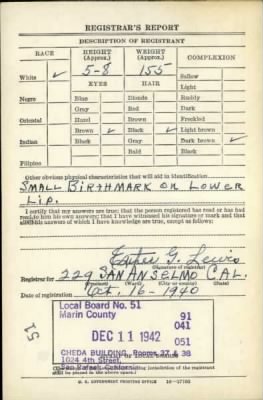 REGISTRAR'S REPORT
DESCRIPTION OF REGISTRANT
RACE HEIGHT (Approx.) WEIGHT (Approx.) COMPLEXION
White ✓ 5-8 155 Sallow
EYES HAIR Light
Negro Blue Blonde Ruddy
Gray Red Dark
Oriental Hazel Brown Freckled
Brown ✓ Black ✓ Light brown
Indian Black Gray Dark brown ✓
Bald Black
Filipino
Other obvious physical characteristics that will aid in identification
SMALL BIRTHMARK ON LOWER
LIP.
I certify that my answers are true; that the person registered has read or has had
read to him his own answers; that I have witnessed his signature or mark and that
all of his answers of which I have knowledge are true, except as follows:
G. Lewis
(Signature of registrar)
Registrar for 229 SAN ANSELMO CAL.
(City or county)
Date of registration Oct. 16-1940
Local Board No. 51 91
Marin County 041
DEC 11 1942 051
CHEDA BUILDING, Rooms 37 & 38
1024 4th Street,
San Rafael, California
51
U. S. GOVERNMENT PRINTING OFFICE 16-17105